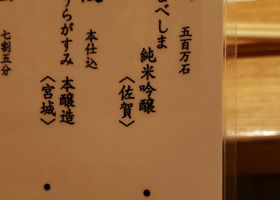 五百万石
べしま 純米吟醸
〈佐賀〉
本仕込
うらがすみ 本醸造
〈宮城〉
七割五分